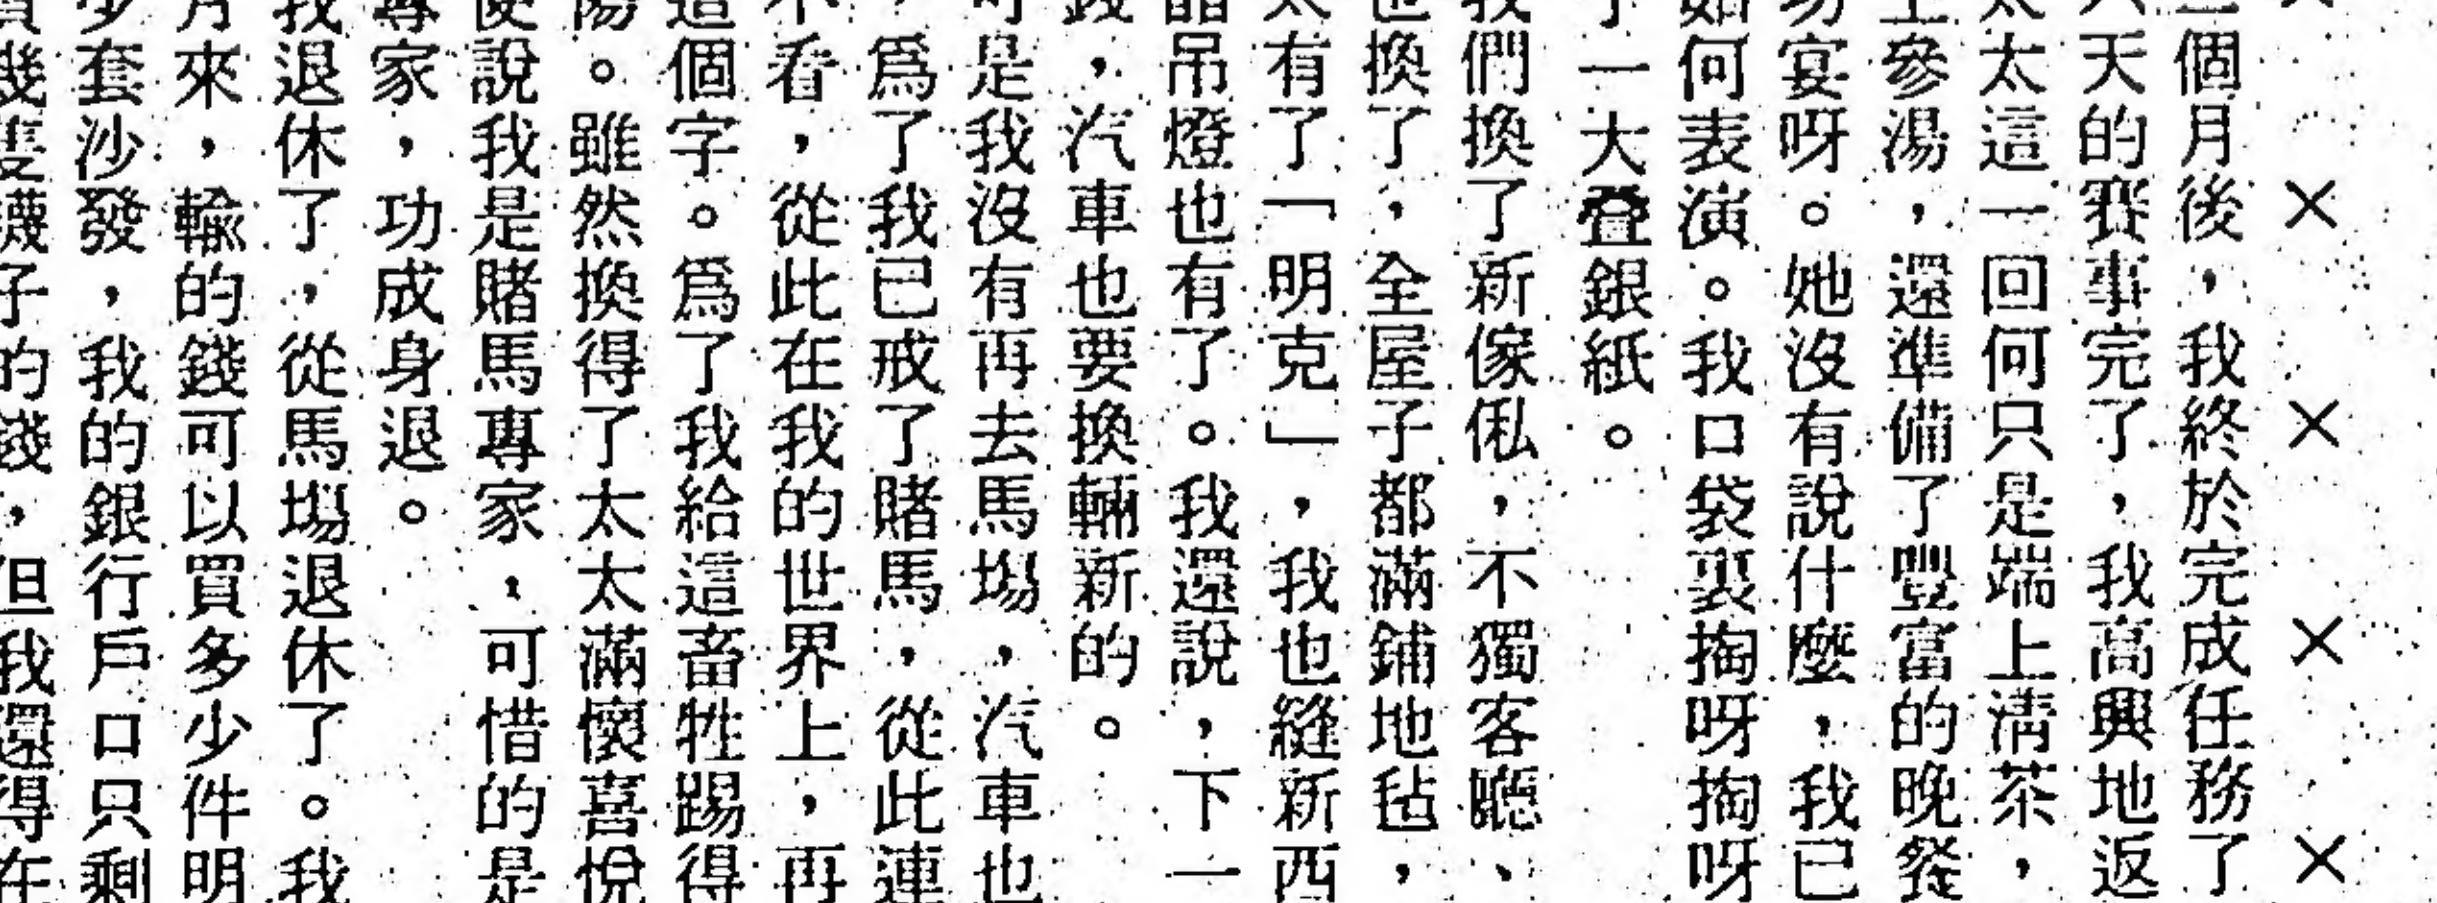 ××××
個月後，我終於完成任務了
天的賽事完了，我高興地返
太太這一回何只是端上清茶，
上參湯，還準備了豐富的晚餐
功宴呀。她沒有說什麼，我已
如何表演。我口袋裏掏呀掏呀
了一大叠銀紙。
我們換了新傢俬，不獨客廳、
也換了，全屋子都滿鋪地毡，
太有了「明克」，我也縫新西
晶吊燈也有了。我還說，下一
錢，汽車也要換輛新的。
可是我沒有再去馬場，汽車也
，爲了我已戒了賭馬，從此連
不看，從此在我的世界上，再
這個字。爲了我給這畜牲踢得
陽。雖然換得了太太滿懷喜悅
便說我是賭馬專家，可惜的是
專家，功成身退。
我退休了，從馬場退休了。我
月來，輸的錢可以買多少件明
少套沙發，我的銀行戶口只剩
買幾隻襪子的錢，但我還得在